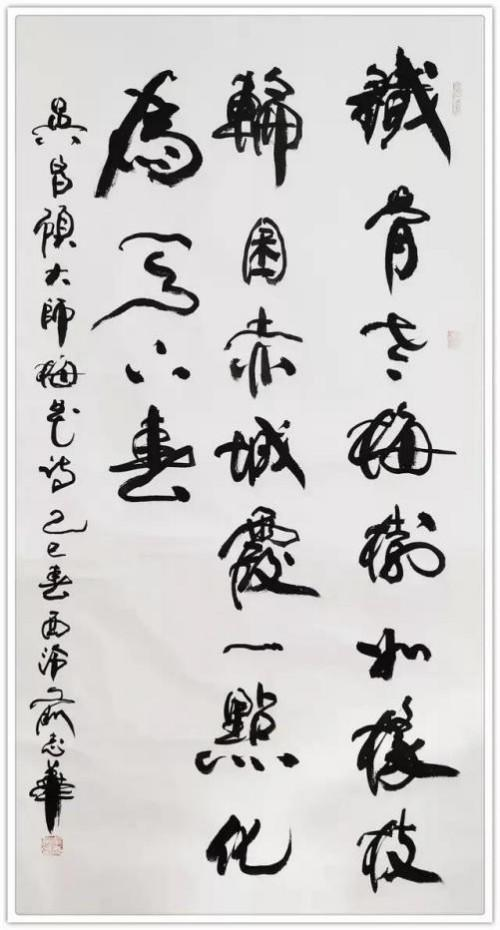 鐵骨老梅樹如椽枝
輪囷赤城霞一點化
為天下春
吳昌碩大師梅花詩乙巳春西志華